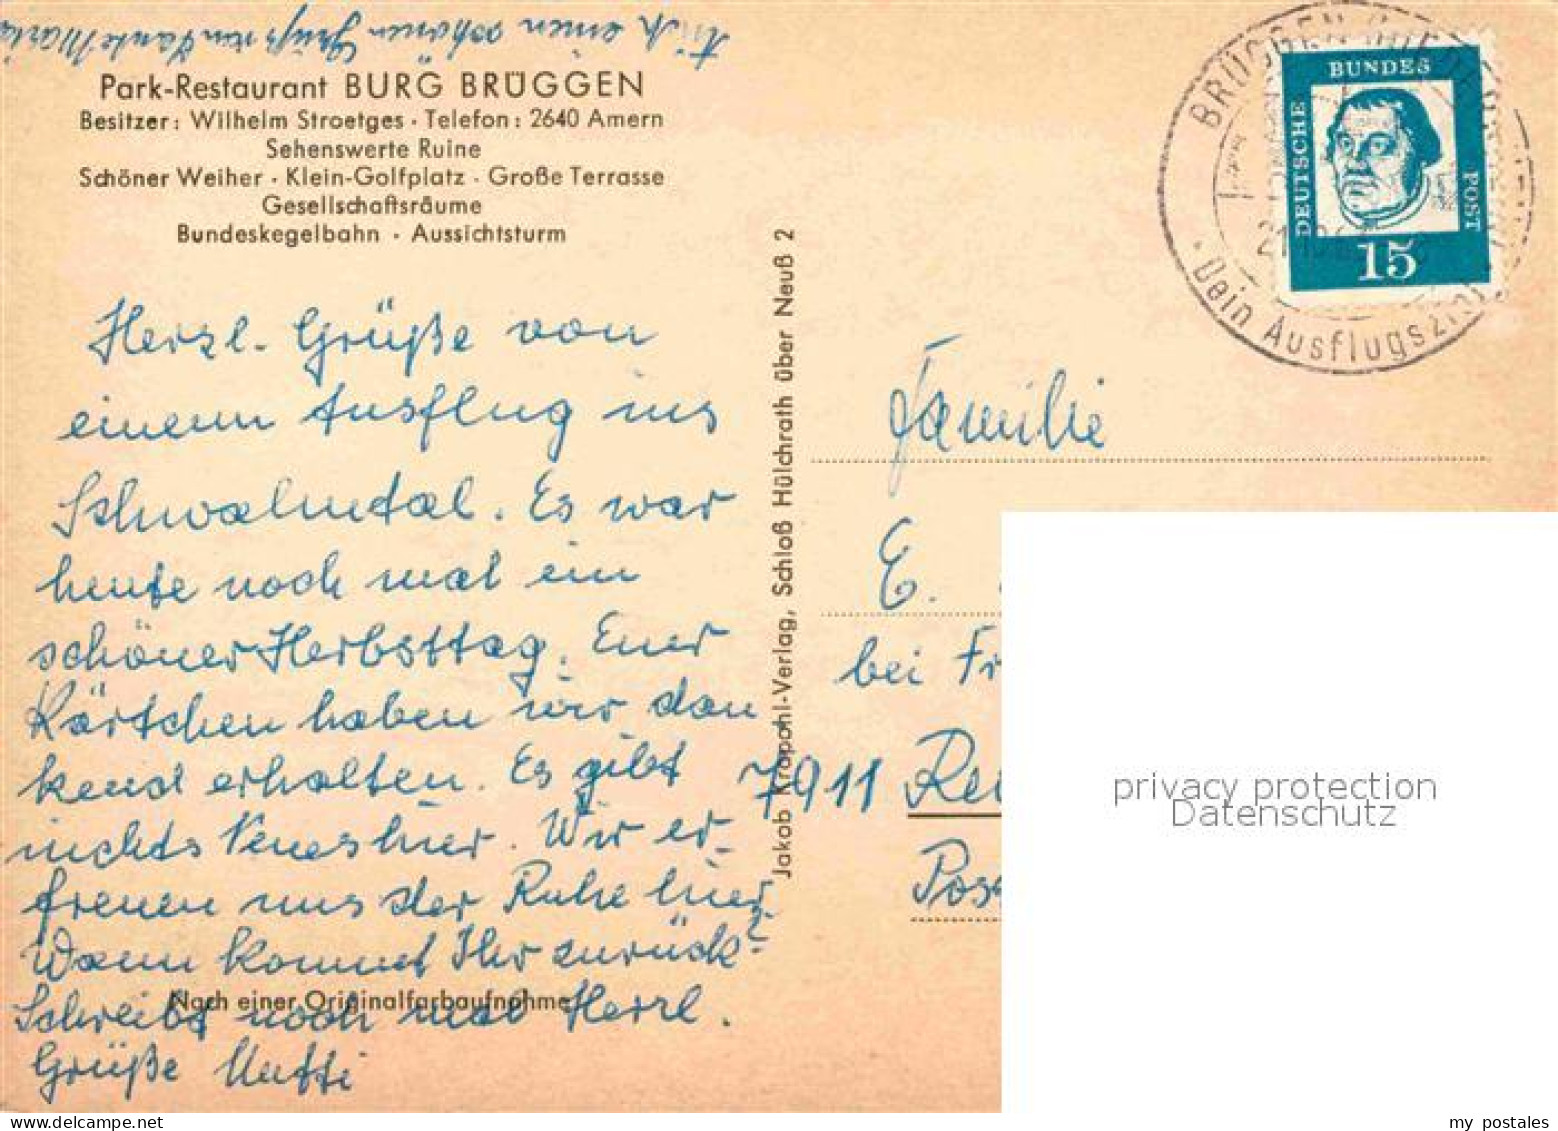 Auch einen schönen Gruß von Tante Maria
Park-Restaurant BURG BRÜGGEN
Besitzer: Wilhelm Stroetges · Telefon: 2640 Amern
Sehenswerte Ruine
Schöner Weiher · Klein-Golfplatz · Große Terrasse
Gesellschaftsräume
Bundeskegelbahn · Aussichtsturm
Herzl. Grüße von
einem Ausflug ins
Schwalmtal. Es war
heute noch mal ein
schöner Herbsttag. Euer
Kärtchen haben wir dan
kend erhalten. Es gibt
nichts Neues hier. Wir er-
freuen uns der Ruhe hier
Wann kommt Ihr zurück?
Schreibt noch mal Herzl.
Grüße Mutti
Nach einer Originalfarbaufnahme
Jakob Krapohl-Verlag, Schloß Hülchrath über Neuß 2
BRÜGGEN
Dein Ausflugsziel
DEUTSCHE
BUNDES
POST
15
Familie
E.
bei Fr
7911 Rei
Pos
privacy protection
Datenschutz
my postales